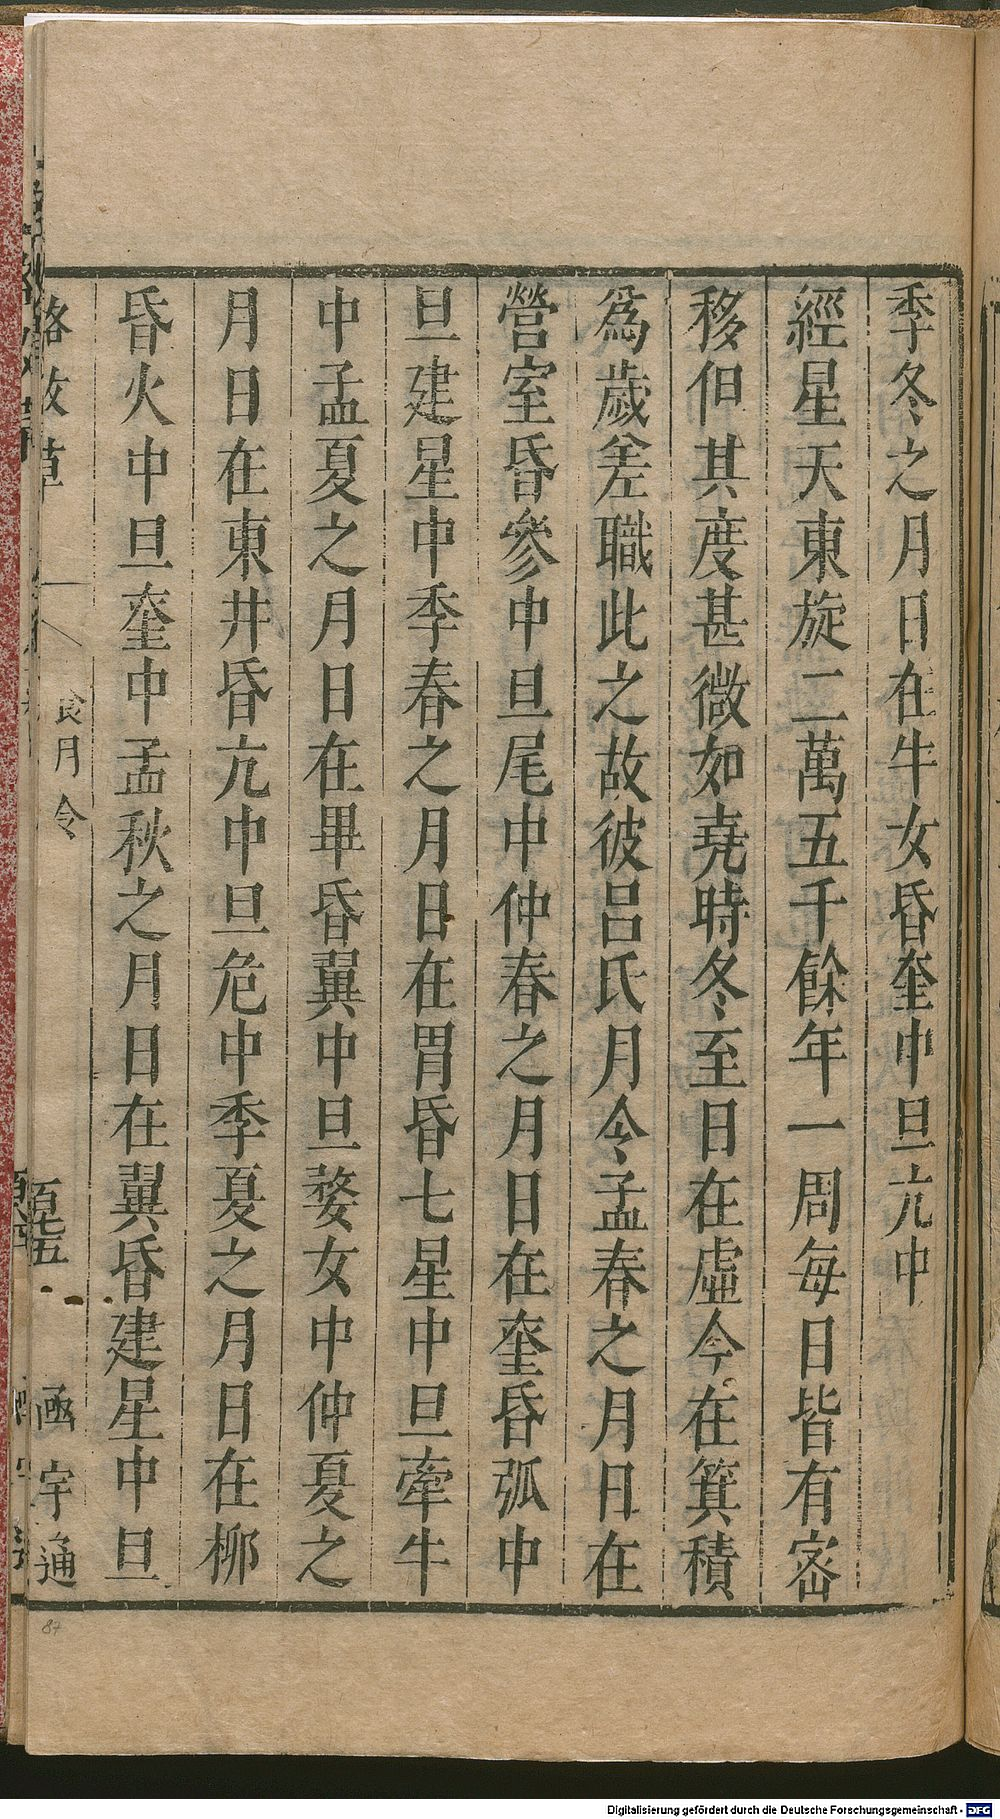 季冬之月日在牛女昏奎中旦亢中
經星天東旋二萬五千餘年一周每日皆有密
移但其度甚微如堯時冬至日在虛今在箕積
為歲差職此之故彼呂氏月令孟春之月日在
營室昏參中旦尾中仲春之月日在奎昏弧中
旦建星中季春之月日在胃昏七星中旦牽牛
中孟夏之月日在畢昏翼中旦婺女中仲夏之
月日在東井昏亢中旦危中季夏之月日在柳
昏火中旦奎中孟秋之月日在翼昏建星中旦
格致草
月令
百七五
函宇通
87
Digitalisierung gefördert durch die Deutsche Forschungsgemeinschaft - DFG